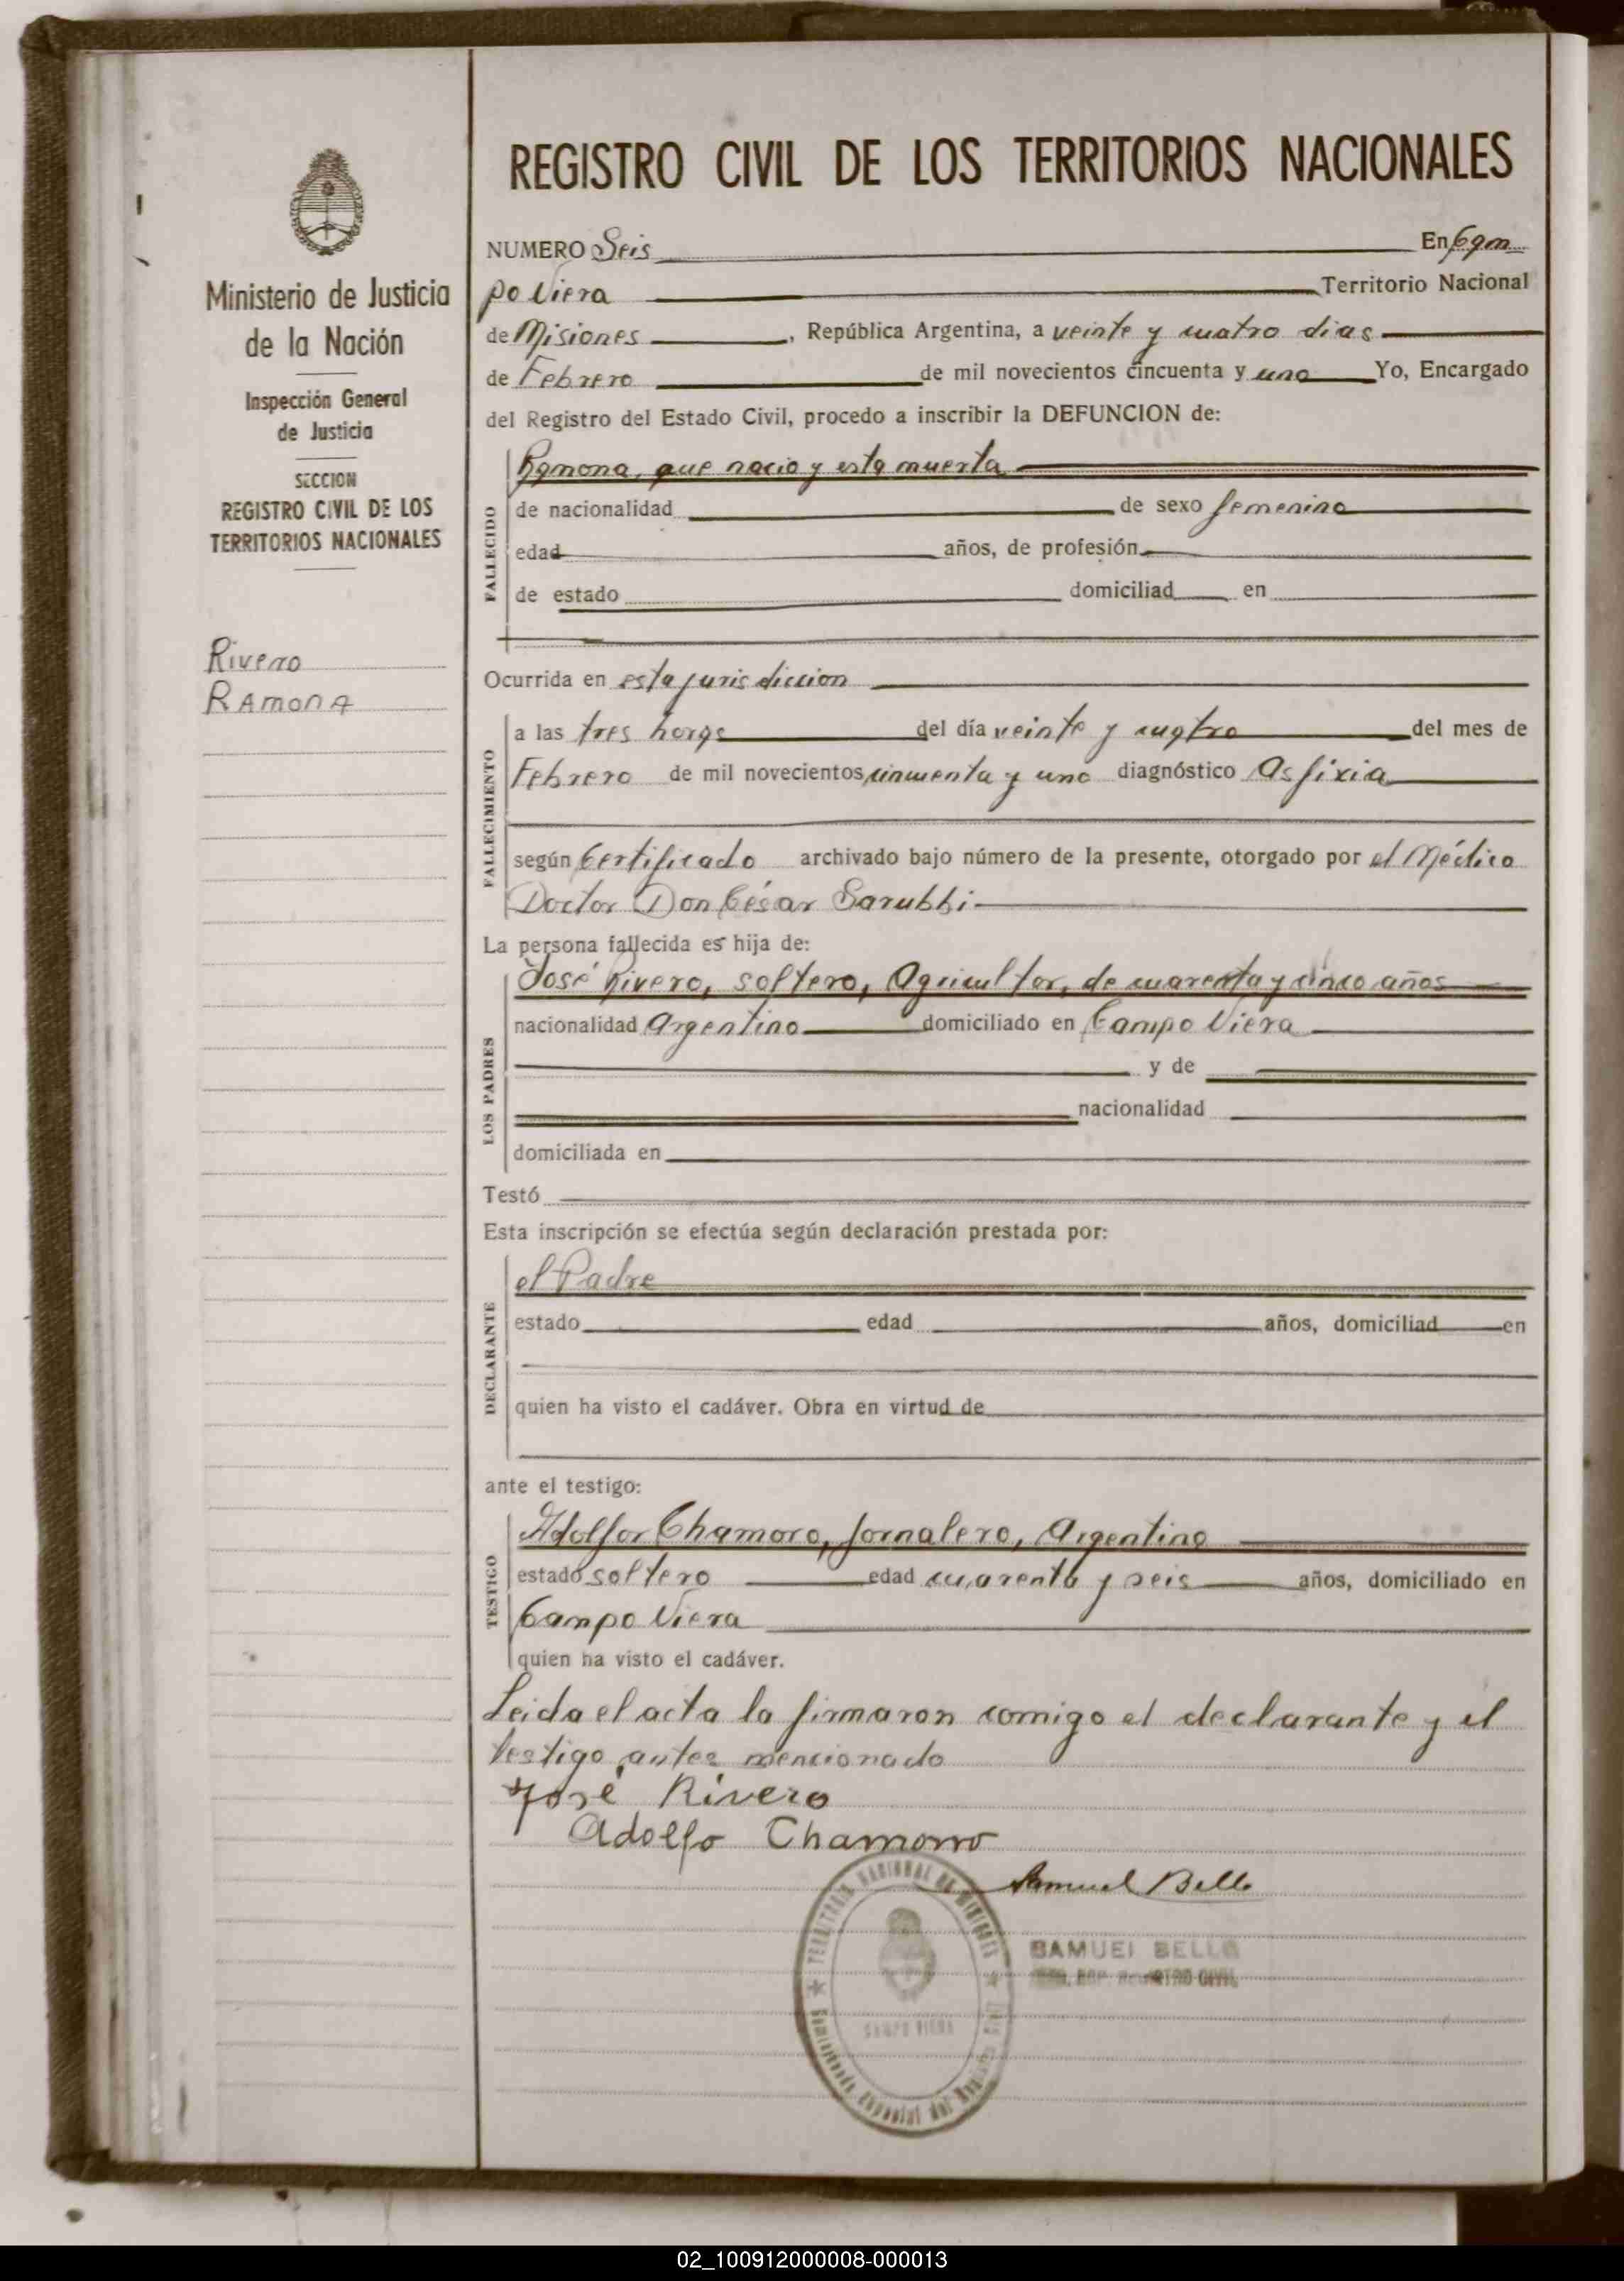 Ministerio de Justicia
de la Nación
Inspección General
de Justicia
SECCION
REGISTRO CIVIL DE LOS
TERRITORIOS NACIONALES
Rivero
RAmonA
REGISTRO CIVIL DE LOS TERRITORIOS NACIONALES
NUMERO Seis En Cam
po Viera Territorio Nacional
de Misiones, República Argentina, a veinte y cuatro dias
de Febrero de mil novecientos cincuenta y uno Yo, Encargado
del Registro del Estado Civil, procedo a inscribir la DEFUNCION de:
FALLECIDO
Ramona, que nacio y esta muerta
de nacionalidad de sexo femenino
edad años, de profesión
de estado domiciliad en
Ocurrida en esta jurisdiccion
FALLECIMIENTO
a las tres horas del día veinte y cuatro del mes de
Febrero de mil novecientos cincuenta y uno diagnóstico Asfixia
según Certificado archivado bajo número de la presente, otorgado por el Médico
Doctor Don César Sarubbi
La persona fallecida es hija de:
LOS PADRES
José Rivero, soltero, Agricultor, de cuarenta y cinco años
nacionalidad Argentino domiciliado en Campo Viera
y de
nacionalidad
domiciliada en
Testó
Esta inscripción se efectúa según declaración prestada por:
DECLARANTE
el Padre
estado edad años, domiciliad en
quien ha visto el cadáver. Obra en virtud de
ante el testigo:
TESTIGO
Adolfor Chamoro, Jornalero, Argentino
estado soltero edad cuarenta y seis años, domiciliado en
Campo Viera
quien ha visto el cadáver.
Leida el acta la firmaron comigo el declarante y el
testigo antes mencionado
José Rivero
Adolfo Chamorro
Samuel Bello
TERRITORIO NACIONAL DE MISIONES
CAMPO VIERA
SAMUEL BELLO
02_100912000008-000013